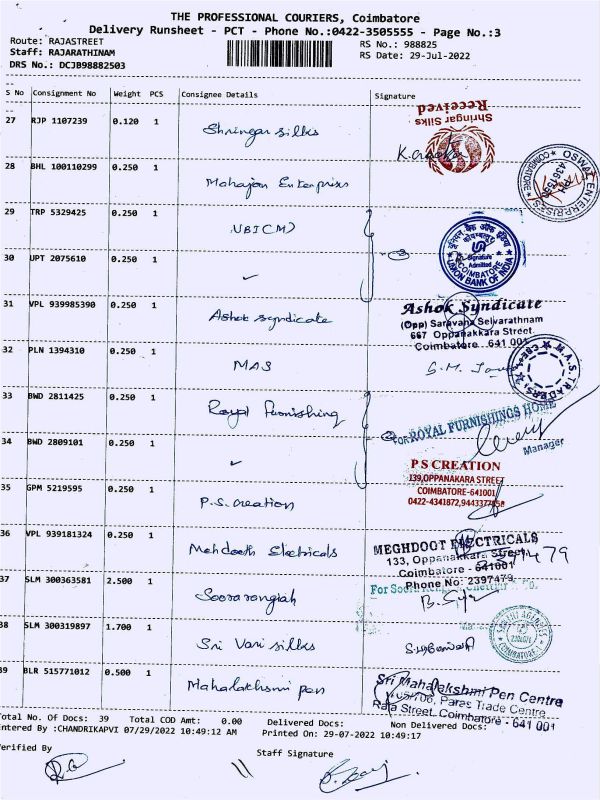 THE PROFESSIONAL COURIERS, Coimbatore
Delivery Runsheet - PCT - Phone No.:0422-3505555 - Page No.:3
Route: RAJASTREET
RS No.: 988825
Staff: RAJARATHINAM
RS Date: 29-Jul-2022
DRS No.: DCJB98882503
S No Consignment No Weight PCS Consignee Details Signature
27 RJP 1107239 0.120 1 Shringar silks
Shringar Silks
Received
28 BHL 100110299 0.250 1 Mahajan Enterprises
29 TRP 5329425 0.250 1 UBI(CM)
UNION BANK OF INDIA
COIMBATORE
Signature
Admitted
30 UPT 2075610 0.250 1
31 VPL 939985390 0.250 1 Ashok Syndicate
Ashok Syndicate
(Opp) Saravana Selvarathnam
667 Oppanakkara Street
Coimbatore - 641 001
32 PLN 1394310 0.250 1 MAS
M.A.S. TRADERS
33 BWD 2811425 0.250 1 Royal Furnishing
For ROYAL FURNISHINGS HOME
Manager
34 BWD 2809101 0.250 1
P S CREATION
139,OPPANAKARA STREET
COIMBATORE-641001
35 GPM 5219595 0.250 1 P.S. creation
36 VPL 939181324 0.250 1 Mehdooth Electricals
MEGHDOOT ELECTRICALS
133, Oppanakkara Street,
Coimbatore - 641001
Phone No: 2397479
37 SLM 300363581 2.500 1 Soorarangiah
38 SLM 300319897 1.700 1 Sri Vari silks
39 BLR 515771012 0.500 1 Mahalakhsmi pen
Sri Mahalakshmi Pen Centre
Paras Trade Centre
Raja Street, Coimbatore - 641 001
Total No. Of Docs: 39 Total COD Amt: 0.00 Delivered Docs: Non Delivered Docs:
Entered By :CHANDRIKAPVI 07/29/2022 10:49:12 AM Printed On: 29-07-2022 10:49:17
Verified By
Staff Signature